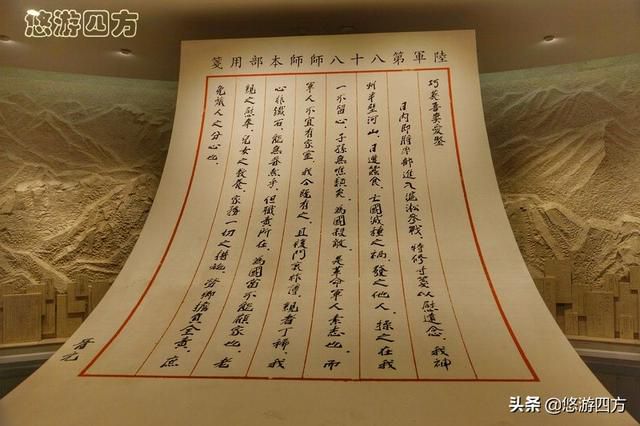 悠游四方
陸軍第八十八師師本部用箋
巧英吾妻愛鑒
日內即將率部進入滬淞參戰，特修寸箋以慰遠念。我神
州半壁河山，日遭蠶食，亡國滅種之禍，發之他人，操之在我
一不留心，子孫無噍類矣。為國殺敵，是革命軍人素志也，而
軍人不宜有家室，我今既有之，且復門衰祚薄，親者丁稀，我
心非鐵石，能無眷然乎，但職責所在，為國當不能顧家也，老
親之慰奉，兒女之教養，家務一切之措施，勞卿擔負全責，庶
免旅人之分心也。
晉元
头条 @悠游四方